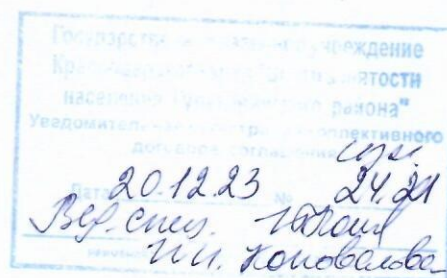 Государственное казенное учреждение
Краснодарского края "Центр занятости
населения района"
Уведомительная регистрация коллективного
договора соглашения изм.
Дата 20.12.23 № 24.21
Вед. спец.
И.И. Коновалова